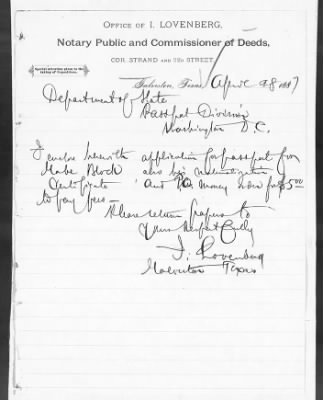 OFFICE OF I. LOVENBERG,
Notary Public and Commissioner of Deeds,
COR. STRAND AND 22D STREET.
Special attention given to the taking of Depositions.
Galveston, Texas, April 28 1887
Department of State
Passport Division
Washington D.C.
I enclose herewith application for passport for
Gabe Bloch also his naturalization
Certificate and P.O. money order for $5.00
to pay fees—
Please return papers to
Yours Respectfully
I. Lovenberg
Galveston Texas